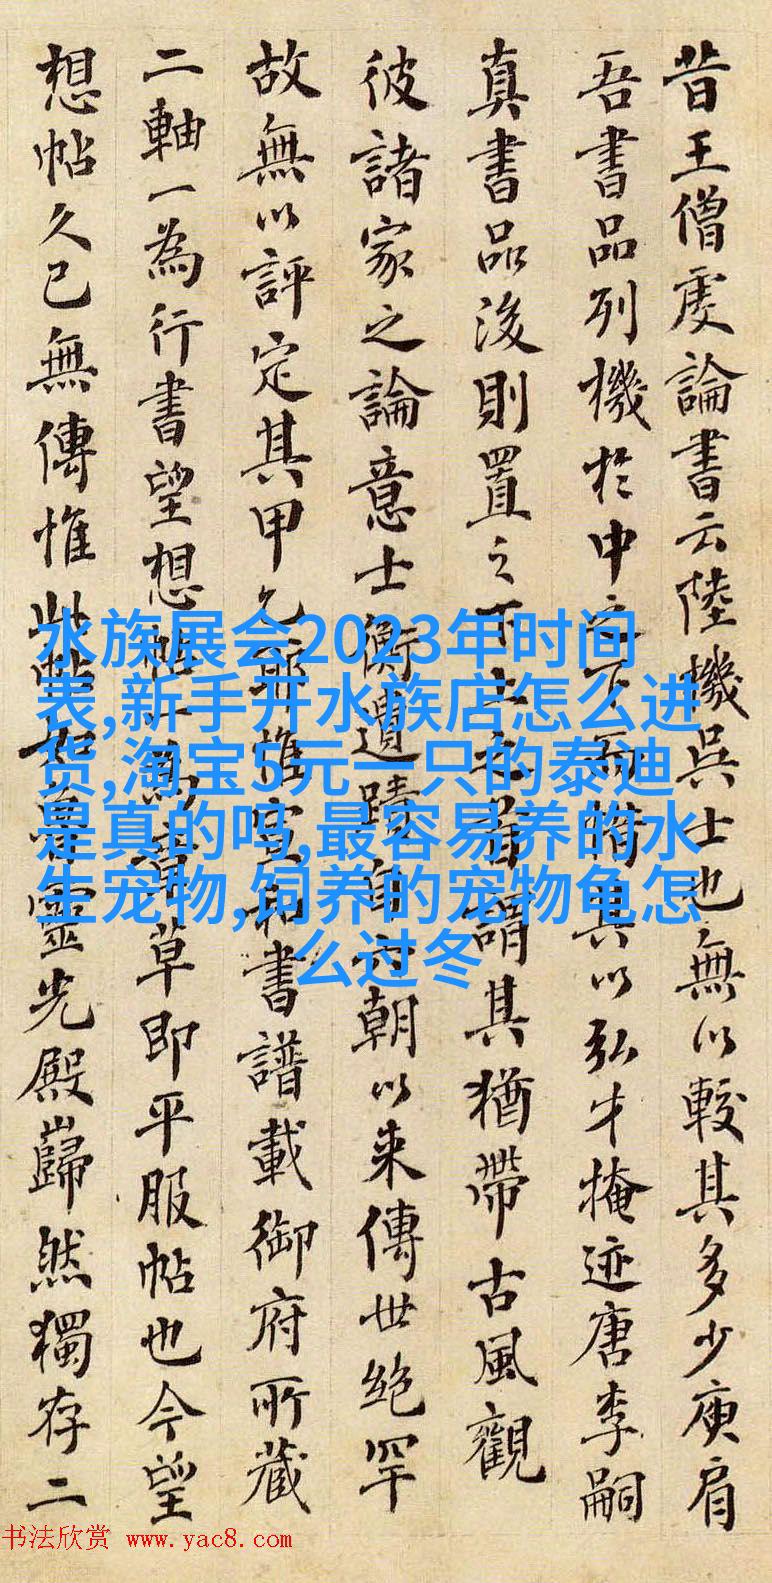 昔王僧虔論書云陸機吳士也無以較其多少庾肩
吾書品列機於中之下而惜其以弘才掩迹唐李嗣
真書品後則置之下上之首謂其猶帶古風觀
彼諸家之論意士衡遺蹟自六朝以来傳世絶罕
故無以評定其甲乙耶惟宣和書譜載御府所藏
二軸一為行書望想帖一為章草即平服帖也今望
想帖久已無傳惟此帖如魯靈光殿巋然獨存二
水族展会2023年时间
表,新手开水族店怎么进
货,淘宝5元一只的泰迪
是真的吗,最容易养的水
生宠物,饲养的宠物龟怎
么过冬
书法欣赏 www.yac8.com